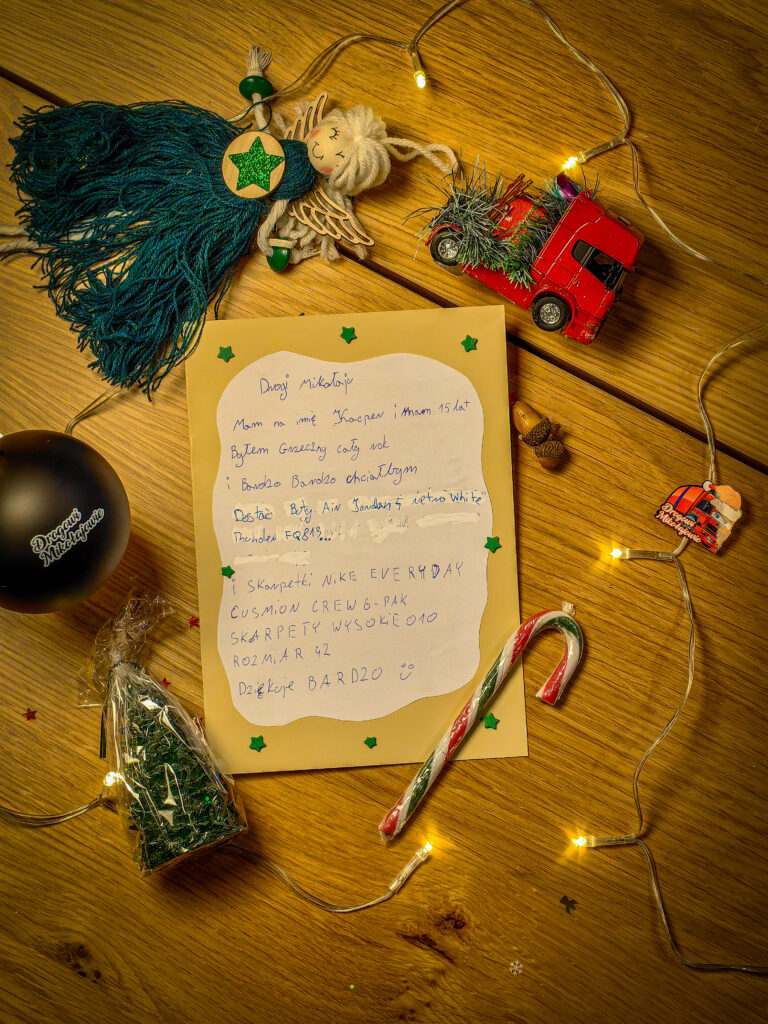 Drogi Mikołaju
Mam na imię Kacper i mam 15 lat
Byłem Grzeczny cały rok
i Bardzo Bardzo chciałbym
Dostać Buty Air Jordan 4 retro White
Thunder FQ813...
i Skarpetki NIKE EVERYDAY
CUSMION CREW 6-PAK
SKARPETY WYSOKIE 010
ROZMIAR 42
Dziękuje BARDZO
Drogowi
Mikołajowie
Drogowi
Mikołajowie